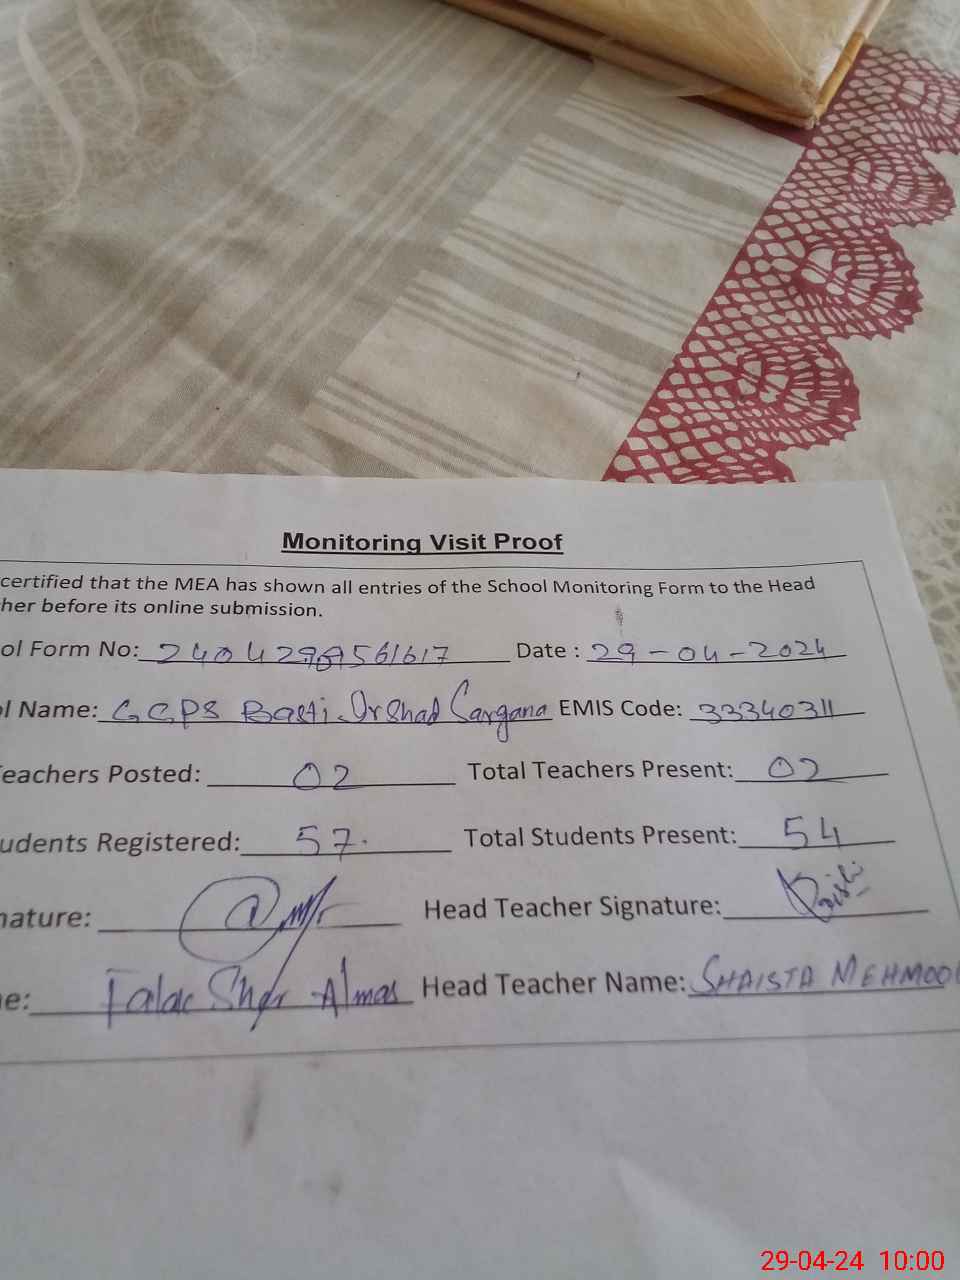 Monitoring Visit Proof
certified that the MEA has shown all entries of the School Monitoring Form to the Head
her before its online submission.
ol Form No: Date : 29-04-2024
l Name: GGPS Basti Irshad Sargana EMIS Code: 33340311
Teachers Posted: 02 Total Teachers Present: 02
udents Registered: 57. Total Students Present: 54
nature: Head Teacher Signature:
e: Falak Sher Almas Head Teacher Name: SHAISTA MEHMOO
29-04-24 10:00